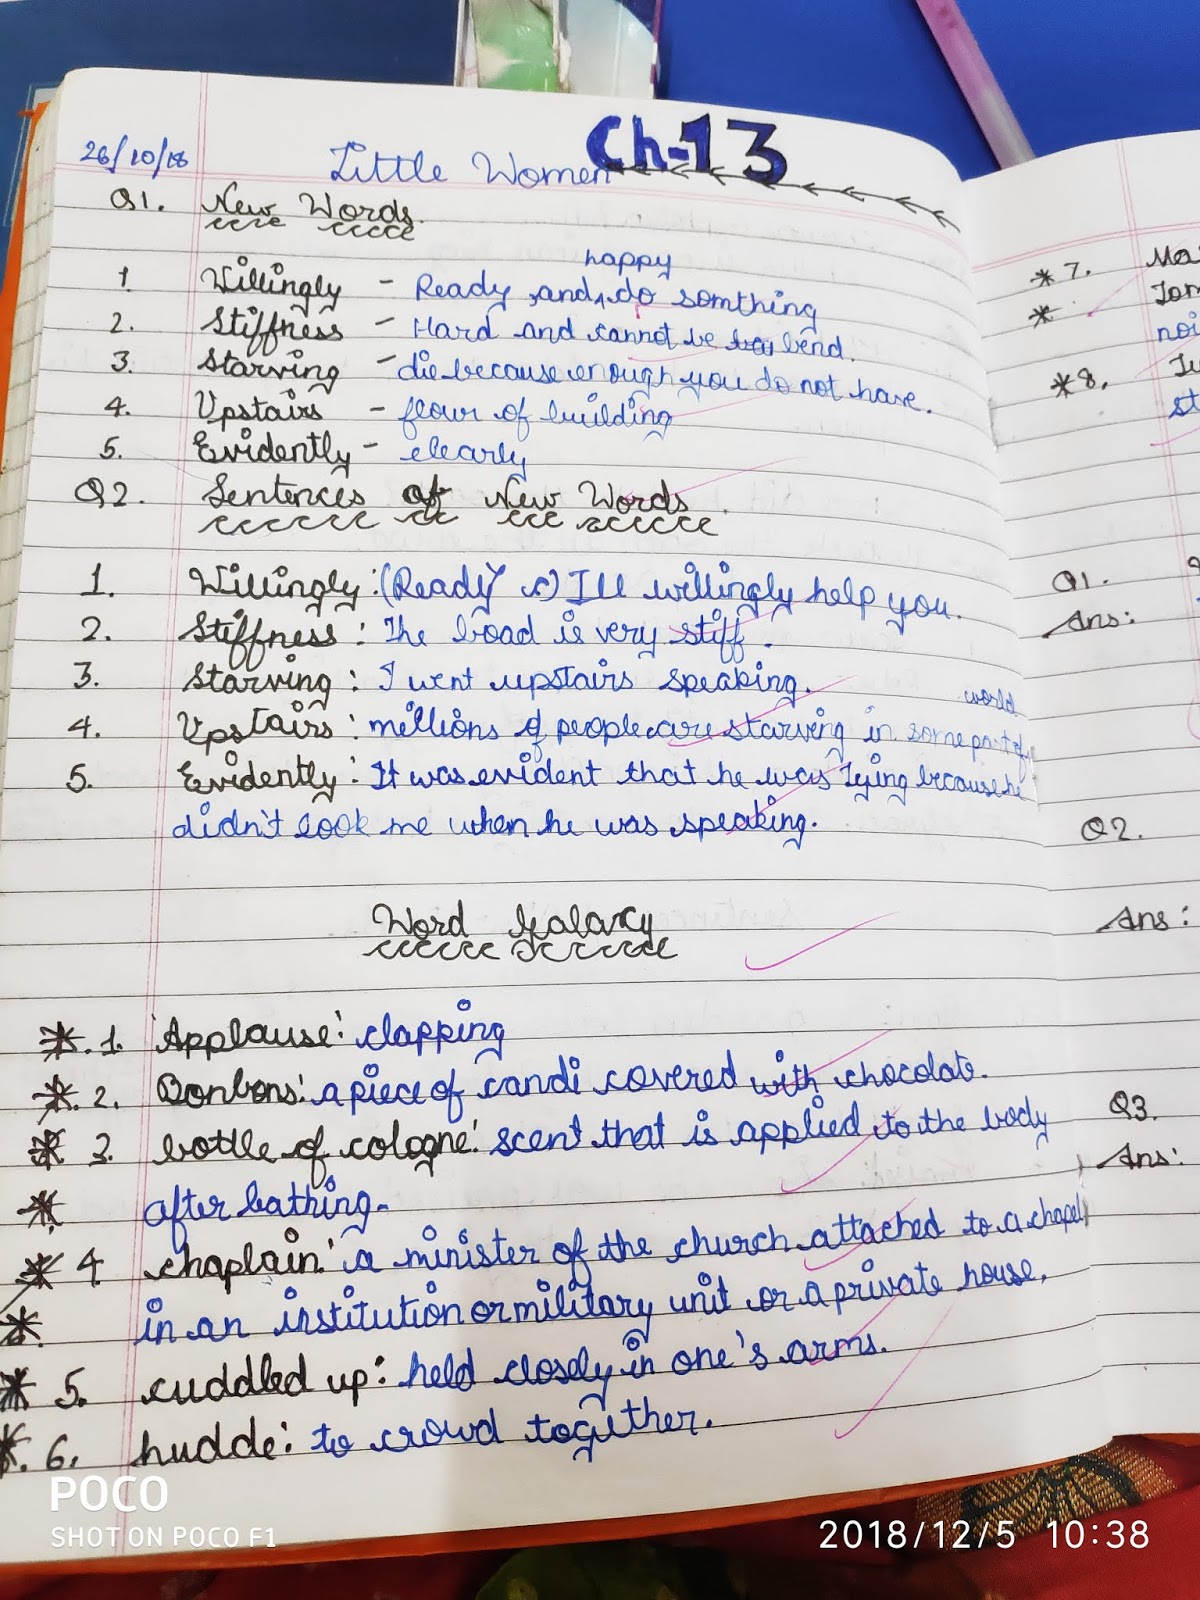 Ch-13
26/10/18 Little Women
Q1. New Words.
happy
1. Willingly - Ready, and ^ do somthing
2. Stiffness - Hard and cannot be bend.
3. Starving - die because enough you do not have.
4. Upstairs - flour of building
5. Evidently - clearly
Q2. Sentences of New Words.
1. Willingly: (Ready ) Ill willingly help you.
2. Stiffness: The boad is very stiff.
3. Starving: I went upstairs speaking.
world
4. Upstairs: millions of people are starving in some part of
5. Evidently: It was evident that he was lying because he
didn't look me when he was speaking.
Word Galaxy
*. 1. Applause: clapping
*. 2. Bonbons: a piece of candi covered with chocolate.
* 3. bottle of cologne: scent that is applied to the body
* after bathing.
* 4. chaplain: a minister of the church attached to a chapel
* in an institution or military unit or a private house.
* 5. cuddled up: held closely in one's arms.
*. 6. hudde: to crowd together.
* 7. Ma
*
noi
* 8.
st
Q1.
Ans:
Q2.
Ans:
Q3.
Ans:
POCO
SHOT ON POCO F1
2018/12/5 10:38